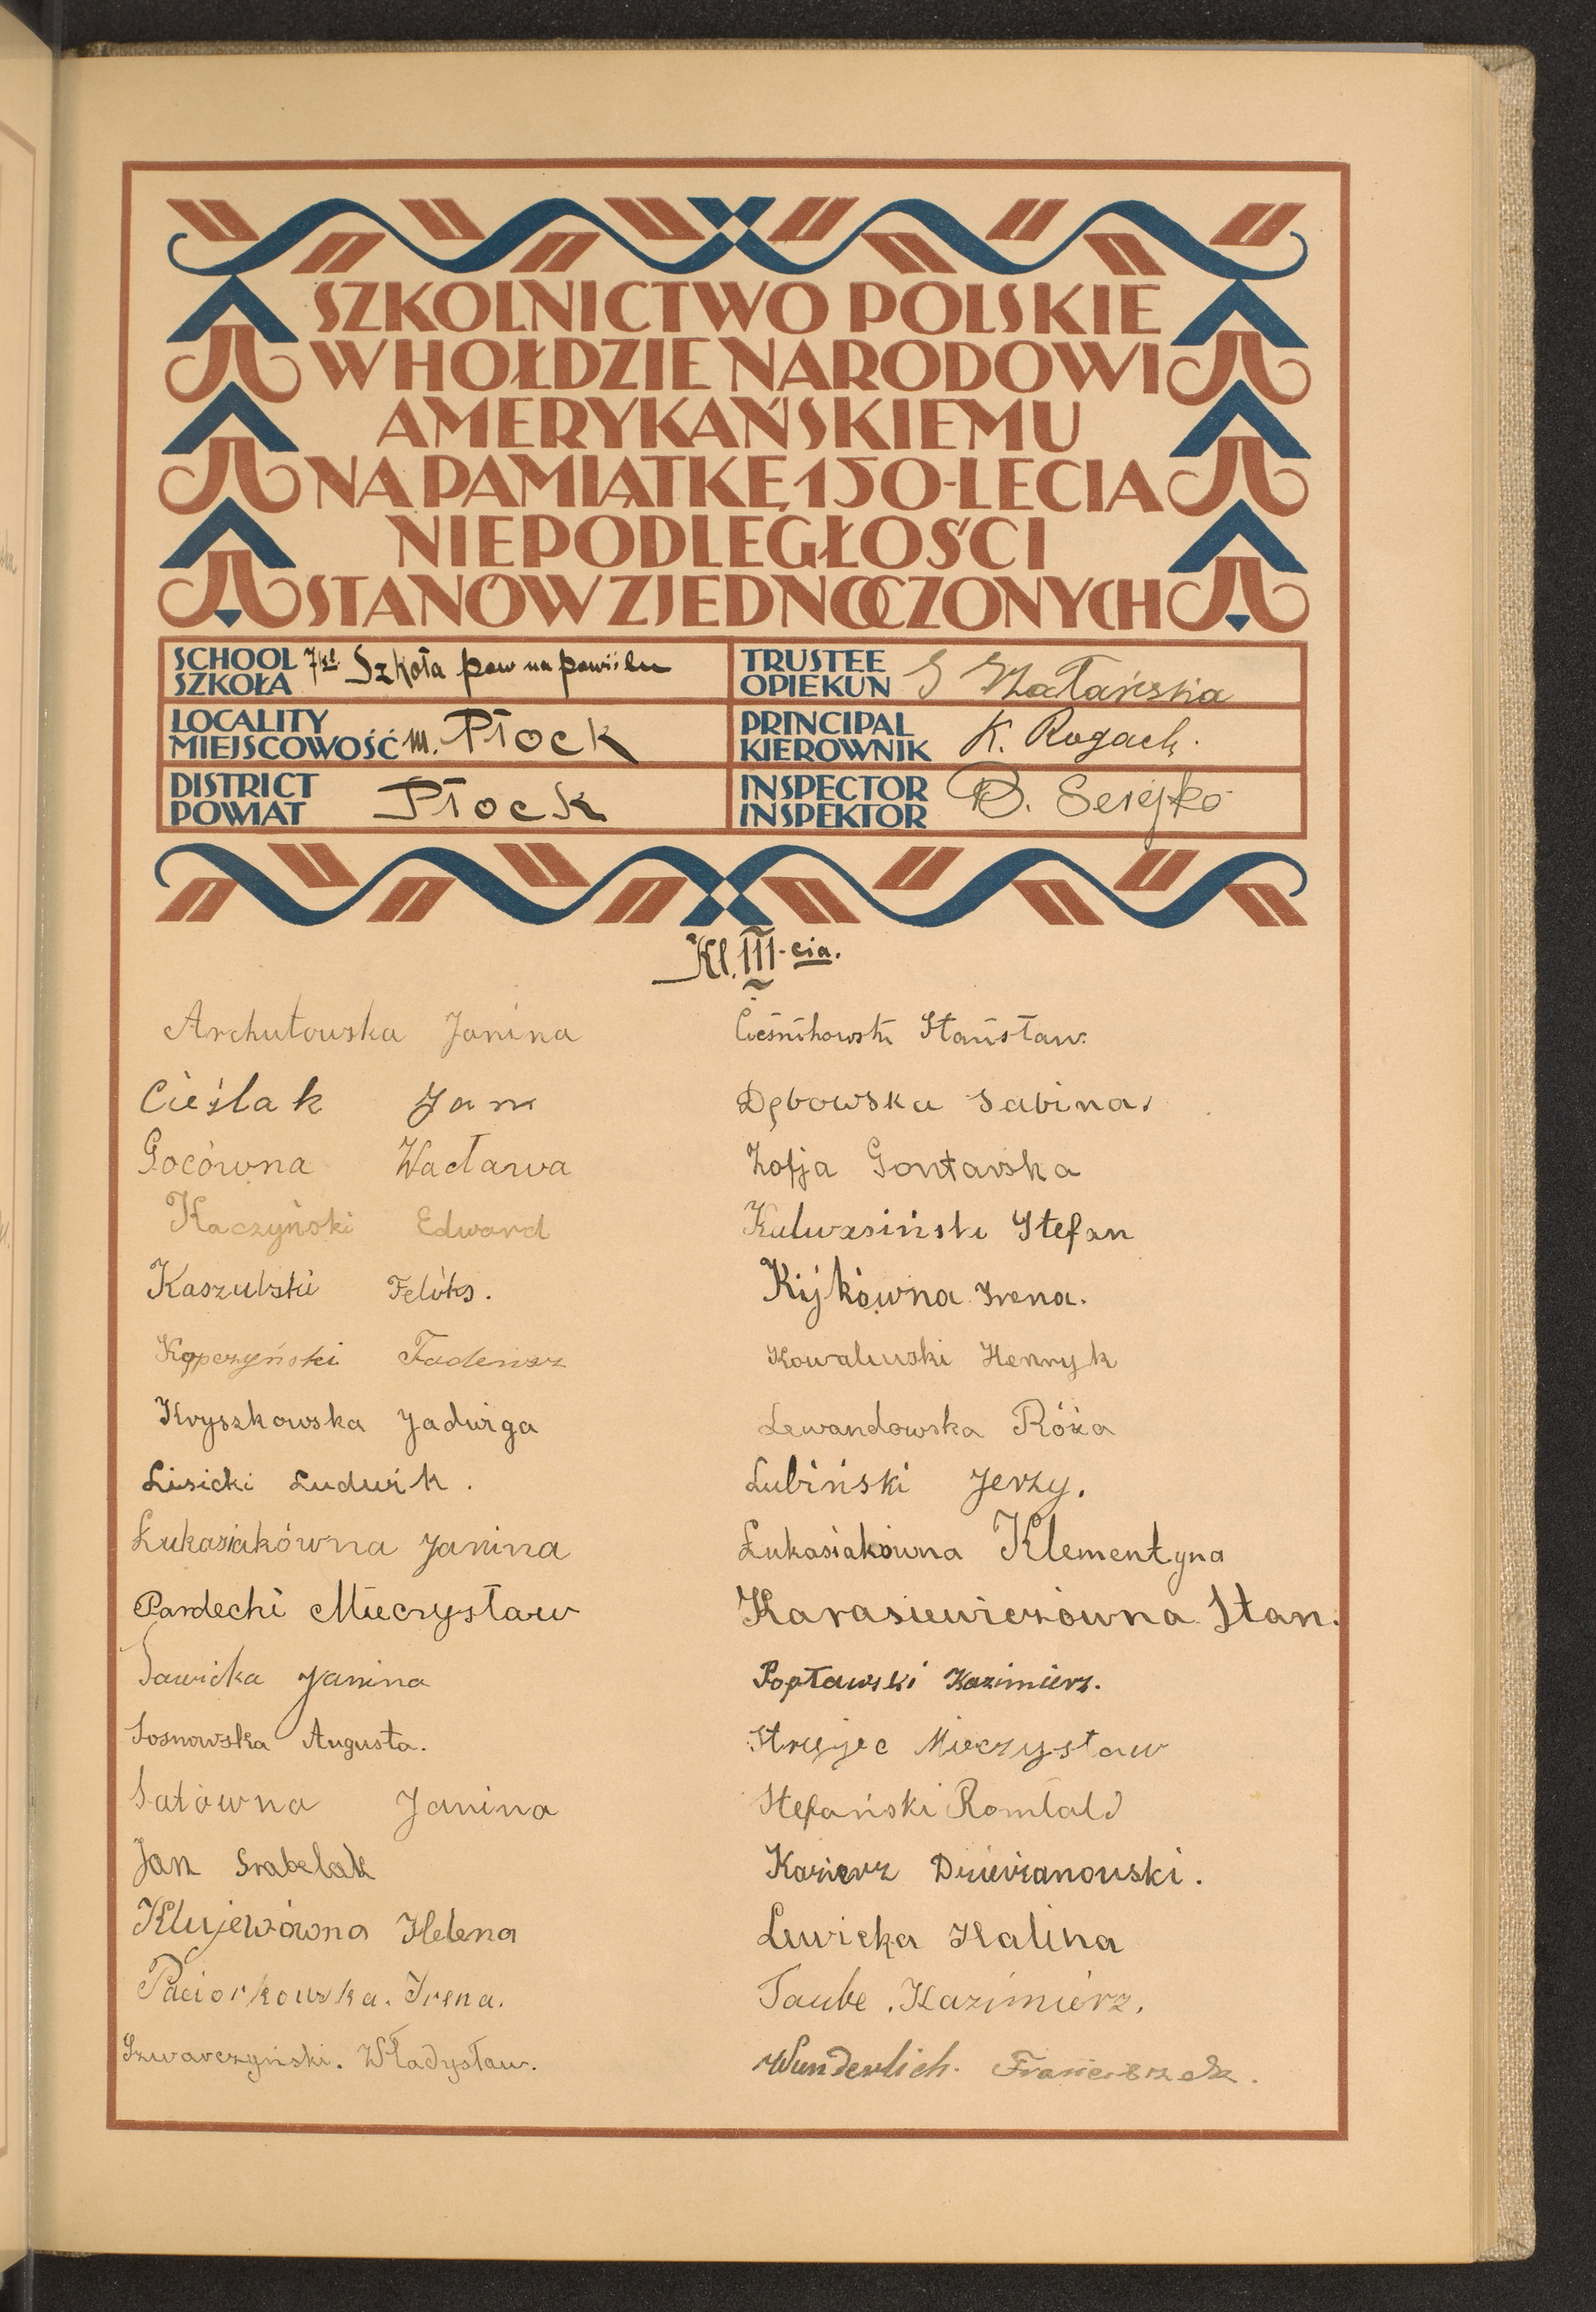 SZKOLNICTWO POLSKIE
W HOŁDZIE NARODOWI
AMERYKAŃSKIEMU
NA PAMIĄTKĘ 150-LECIA
NIEPODLEGŁOŚCI
STANÓW ZJEDNOCZONYCH
SCHOOL
SZKOŁA
7 kl. Szkoła pow na powiślu
TRUSTEE
OPIEKUN
LOCALITY
MIEJSCOWOŚĆ
m. Płock
PRINCIPAL
KIEROWNIK
K. Rogach.
DISTRICT
POWIAT
Płock
INSPECTOR
INSPEKTOR
B. Serejko
Kl. III-cia.
Archutowska Janina
Cieśnikowski Stanisław.
Cieślak Jan
Dębowska Sabina.
Gocówna Wacława
Zofja Gontarska
Kaczyński Edward
Kulwasiński Stefan
Kaszubski Feliks.
Kijkówna Irena.
Kopczyński Tadeusz
Kowalewski Henryk
Kryszkowska Jadwiga
Lewandowska Róża
Lisicki Ludwik.
Lubiński Jerzy.
Łukasiakówna Janina
Łukasiakówna Klementyna
Pardecki Mieczysław
Karasiewiczówna Stan.
Sawicka Janina
Popławski Kazimierz.
Sosnowska Augusta.
Mieczysław
Satówna Janina
Stefański Romlald
Jan Srabelak
Kazierz Dzierzanowski.
Klujewówna Helena
Lewicka Halina
Paciorkowska. Irena.
Taube. Kazimierz.
Szwarczyński. Władysław.
Wunderlich. Franciszek.